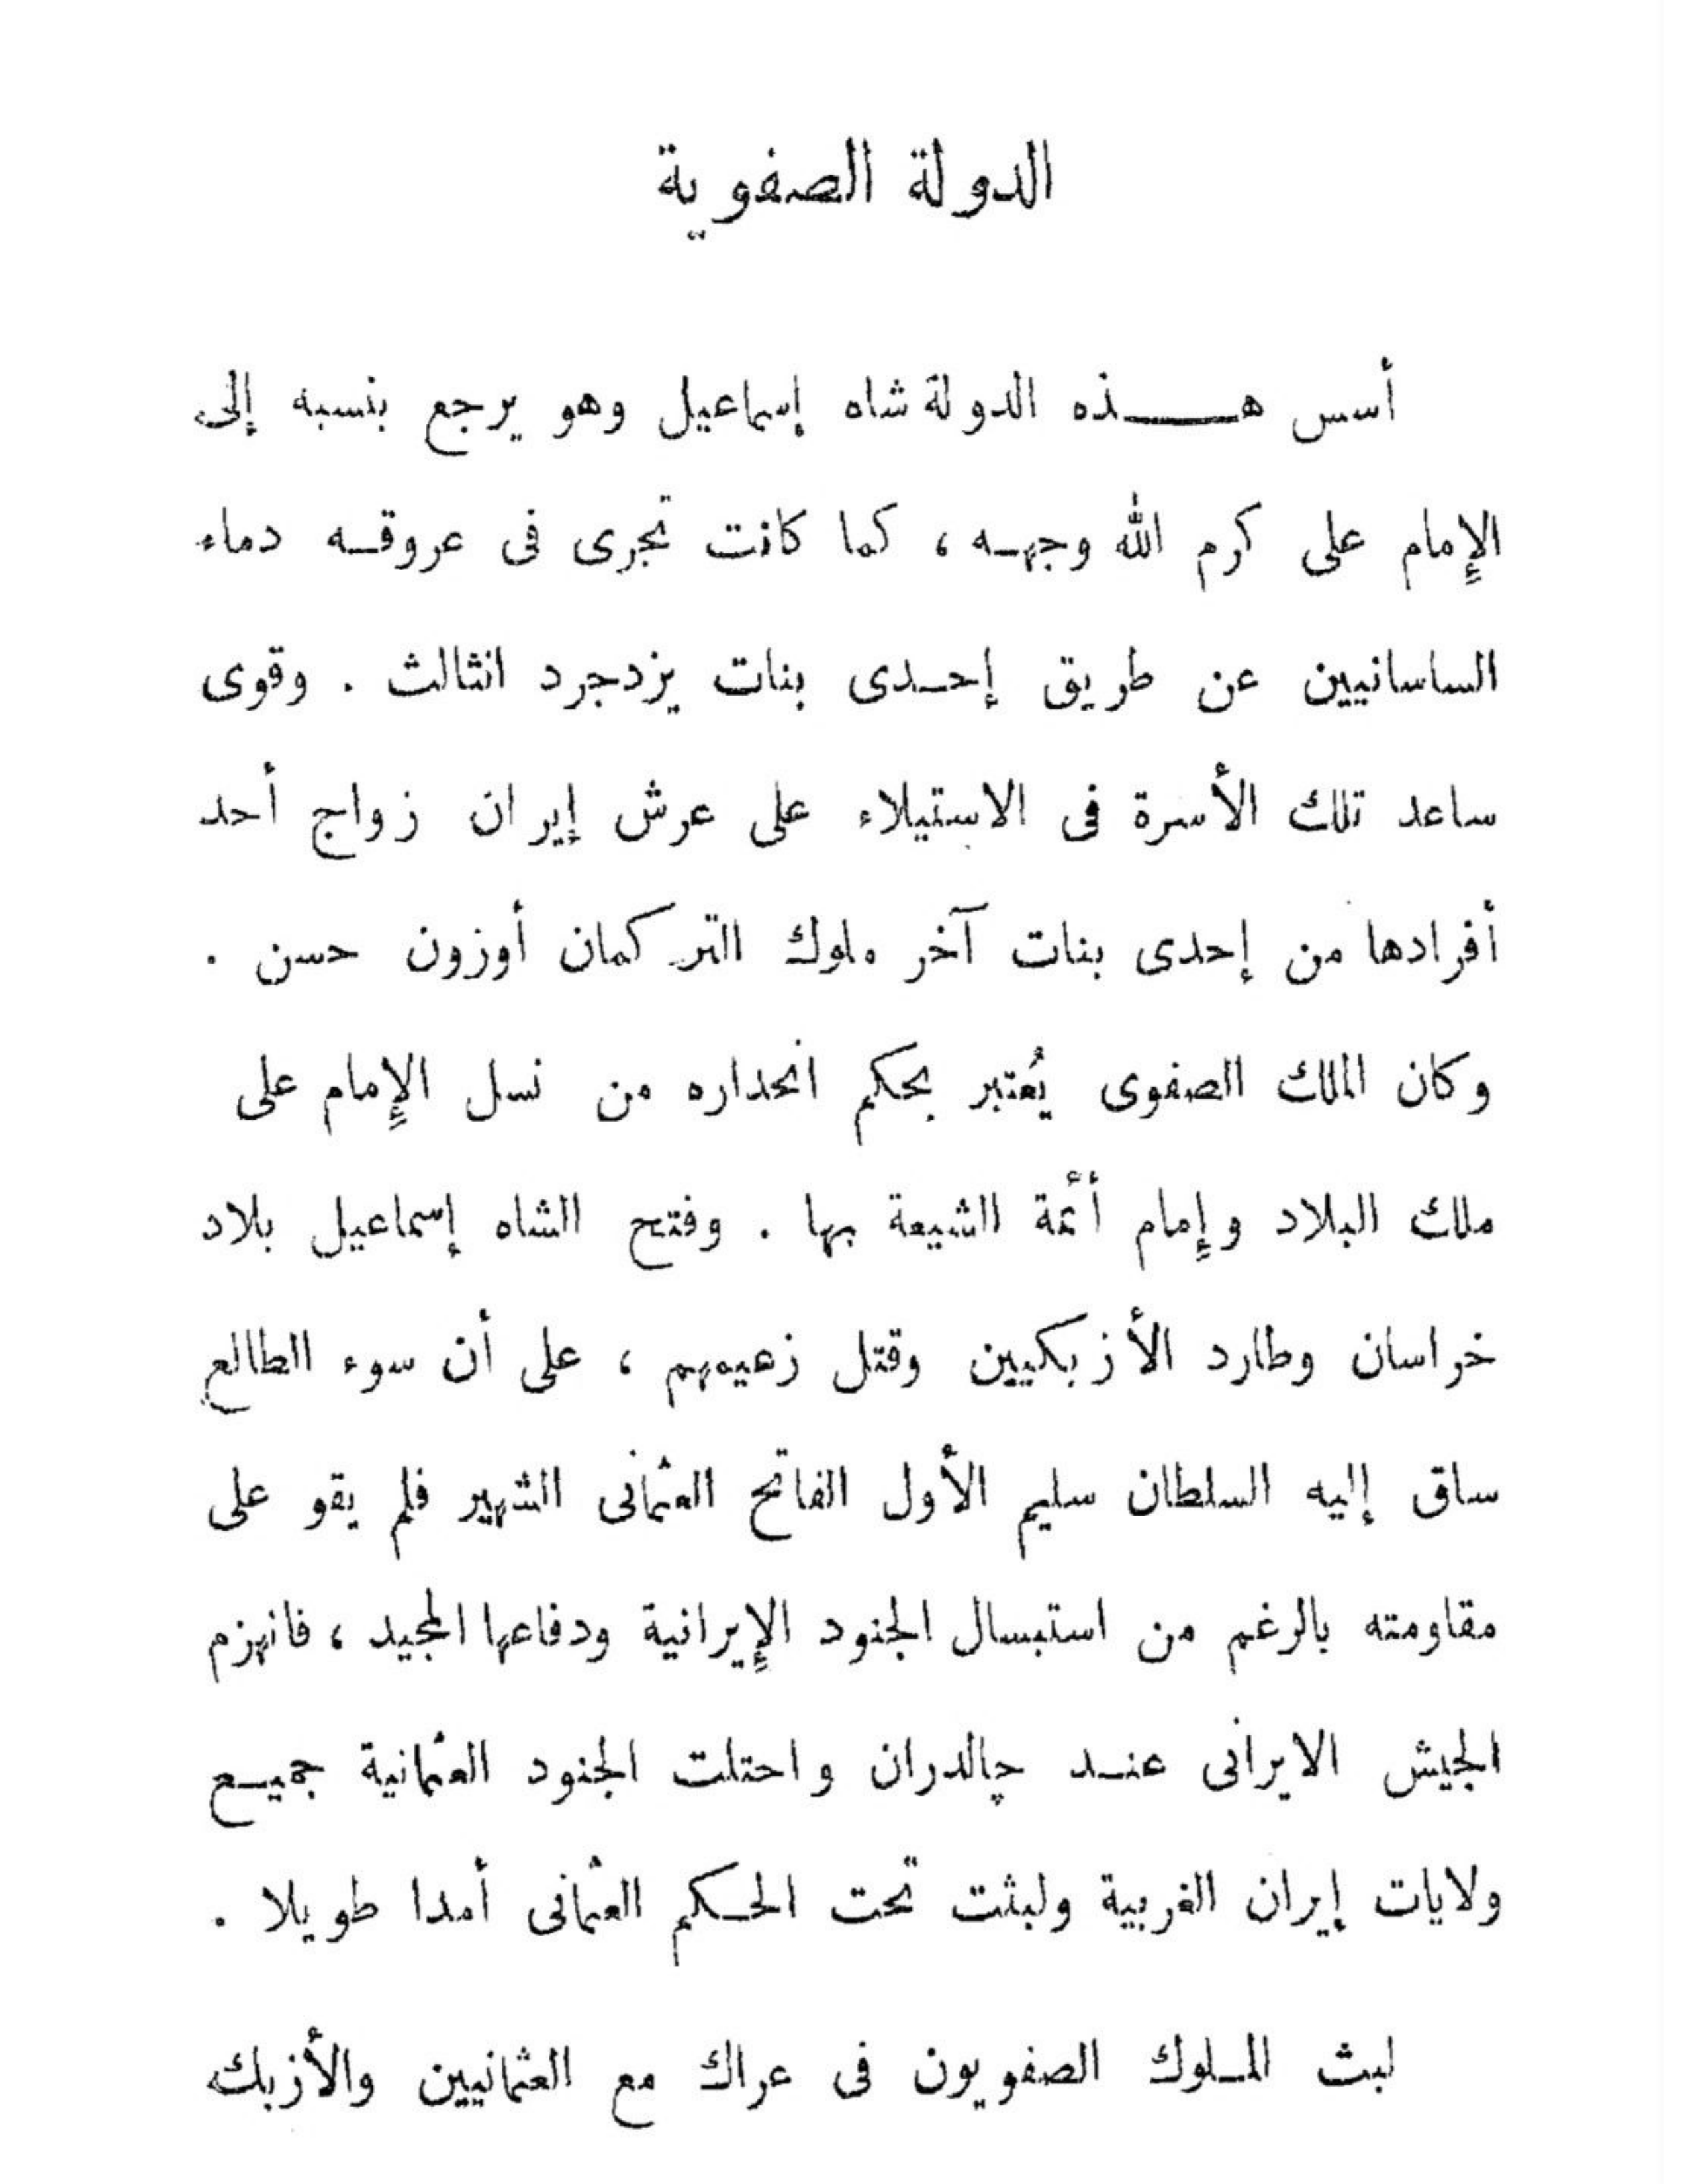 الدولة الصفوية
أسس هذه الدولة شاه إسماعيل وهو يرجع بنسبه إلى
الإمام على كرم الله وجهه ، كما كانت تجرى فى عروقه دماء
الساسانيين عن طريق إحدى بنات يزدجرد الثالث . وقوى
ساعد تلك الأسرة فى الاستيلاء على عرش إيران زواج أحد
أفرادها من إحدى بنات آخر ملوك التركمان أوزون حسن .
وكان الملك الصفوى يُعتبر بحكم انحداره من نسل الإمام على
ملك البلاد وإمام أئمة الشيعة بها . وفتح الشاه إسماعيل بلاد
خراسان وطارد الأزبكيين وقتل زعيمهم ، على أن سوء الطالع
ساق إليه السلطان سليم الأول الفاتح العثمانى الشهير فلم يقو على
مقاومته بالرغم من استبسال الجنود الإيرانية ودفاعها المجيد ، فانهزم
الجيش الايرانى عند چالدران واحتلت الجنود العثمانية جميع
ولايات إيران الغربية ولبثت تحت الحكم العثمانى أمدا طويلا .
لبث الملوك الصفويون فى عراك مع العثمانيين والأزبك